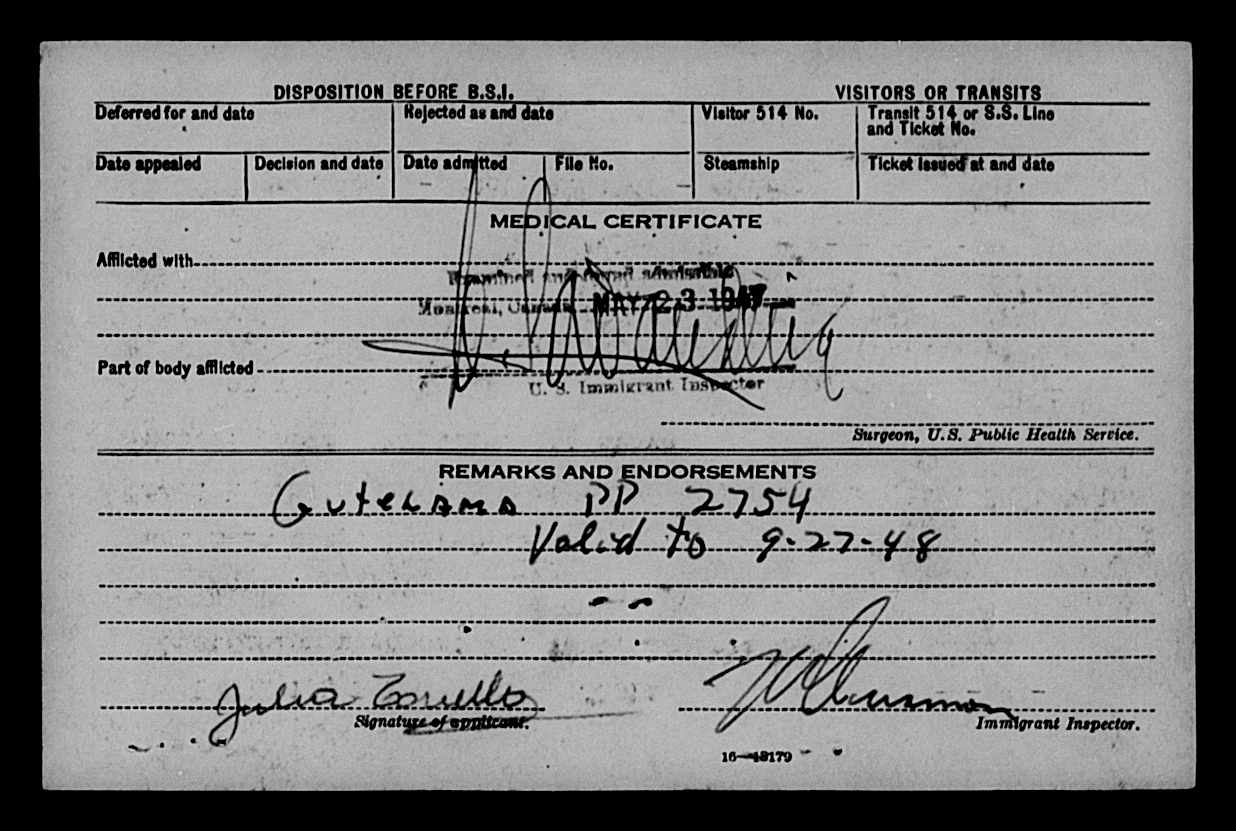 DISPOSITION BEFORE B.S.I. VISITORS OR TRANSITS
Deferred for and date Rejected as and date Visitor 514 No. Transit 514 or S.S. Line and Ticket No.
Date appealed Decision and date Date admitted File No. Steamship Ticket issued at and date
MEDICAL CERTIFICATE
Afflicted with
Examined and admissible
Montreal, Canada MAY 23 1947
Part of body afflicted
U. S. Immigrant Inspector
Surgeon, U.S. Public Health Service.
REMARKS AND ENDORSEMENTS
PP 2754
Valid to 9-27-48
Julia
Signature of applicant. Immigrant Inspector.
16—13179